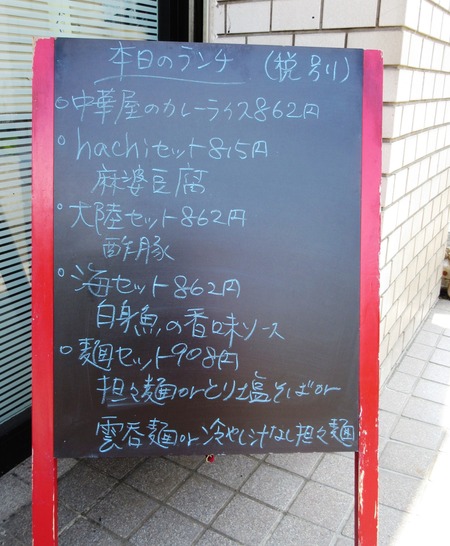 本日のランチ (税別)
○中華屋のカレーライス862円
○hachiセット815円
麻婆豆腐
○大陸セット862円
酢豚
○海セット862円
白身魚の香味ソース
○麺セット908円
担々麺orとり塩そばor
雲呑麺or冷やし汁なし担々麺